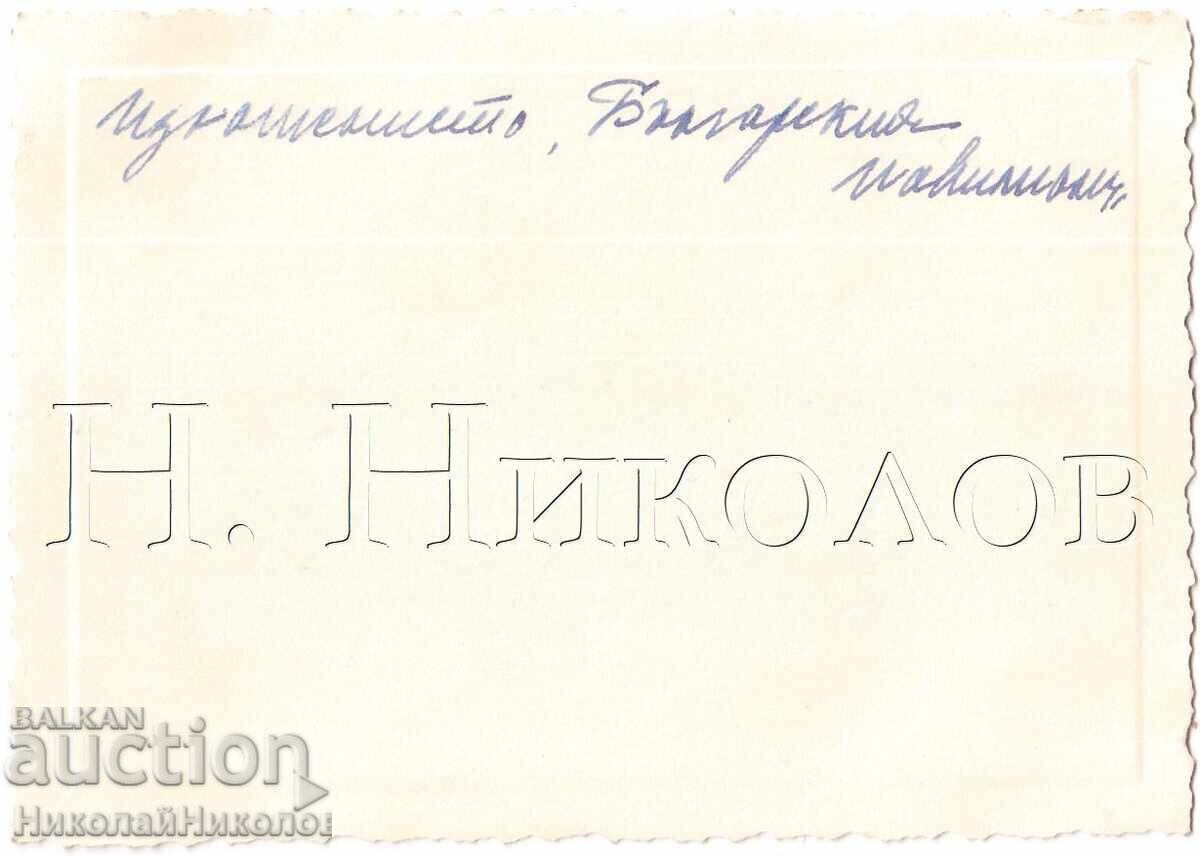 изложението, Българския
павилион„
Н. Николов
BALKAN
auction
НиколайНиколов